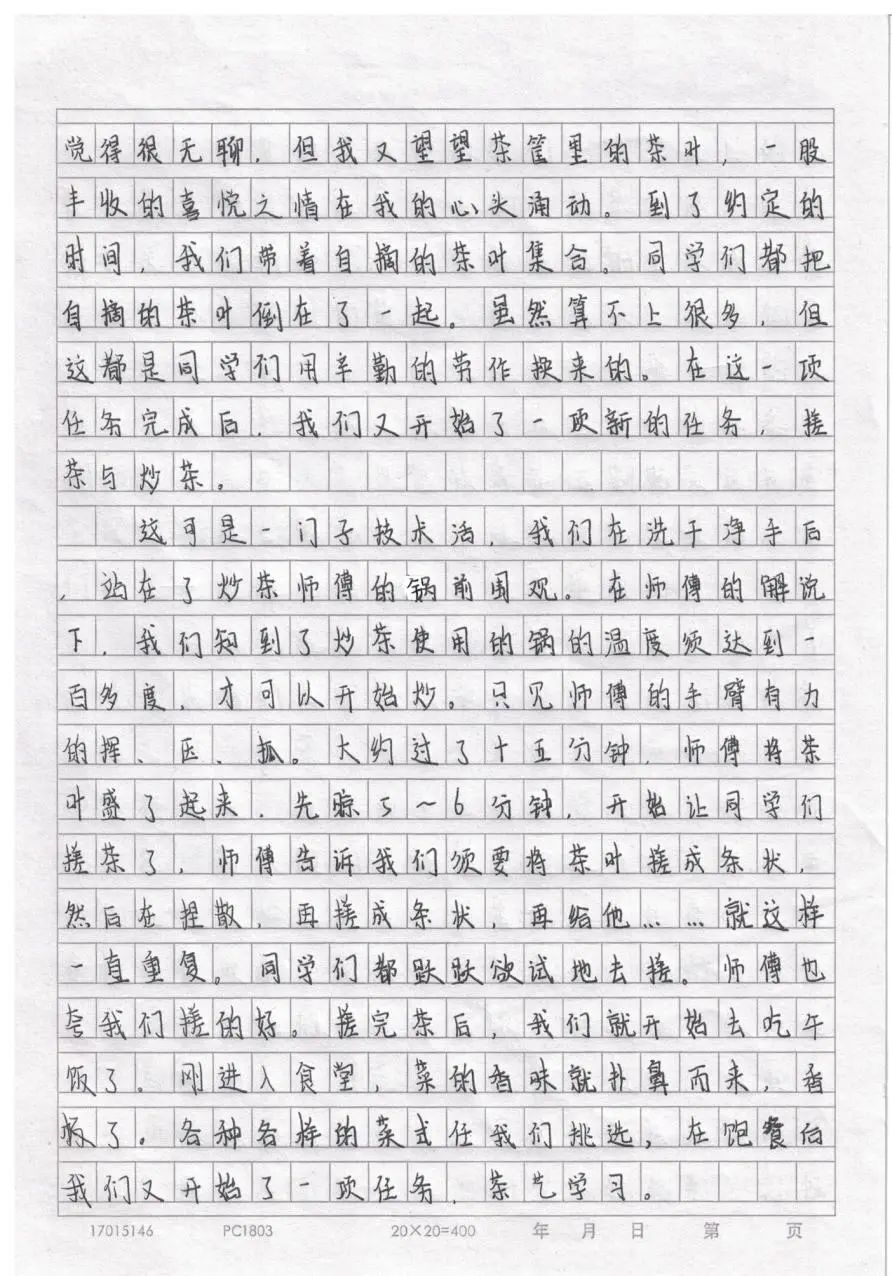 觉得很无聊，但我又望望茶筐里的茶叶，一股
丰收的喜悦之情在我的心头涌动。到了约定的
时间，我们带着自摘的茶叶集合。同学们都把
自摘的茶叶倒在了一起。虽然算不上很多，但
这都是同学们用辛勤的劳作换来的。在这一项
任务完成后，我们又开始了一项新的任务，搓
茶与炒茶。
这可是一门子技术活，我们在洗干净手后
，站在了炒茶师傅的锅前围观。在师傅的解说
下，我们知到了炒茶使用的锅的温度须达到一
百多度，才可以开始炒。只见师傅的手臂有力
的挥、压、抓。大约过了十五分钟，师傅将茶
叶盛了起来，先晾5～6分钟，开始让同学们
搓茶了，师傅告诉我们须要将茶叶搓成条状，
然后在捏散，再搓成条状，再给他……就这样
一直重复。同学们都跃跃欲试地去搓。师傅也
夸我们搓的好。搓完茶后，我们就开始去吃午
饭了。刚进入食堂，菜的香味就扑鼻而来，香
极了。各种各样的菜式任我们挑选，在饱餐后
我们又开始了一项任务，茶艺学习。
17015146 PC1803 20×20=400 年 月 日 第 页